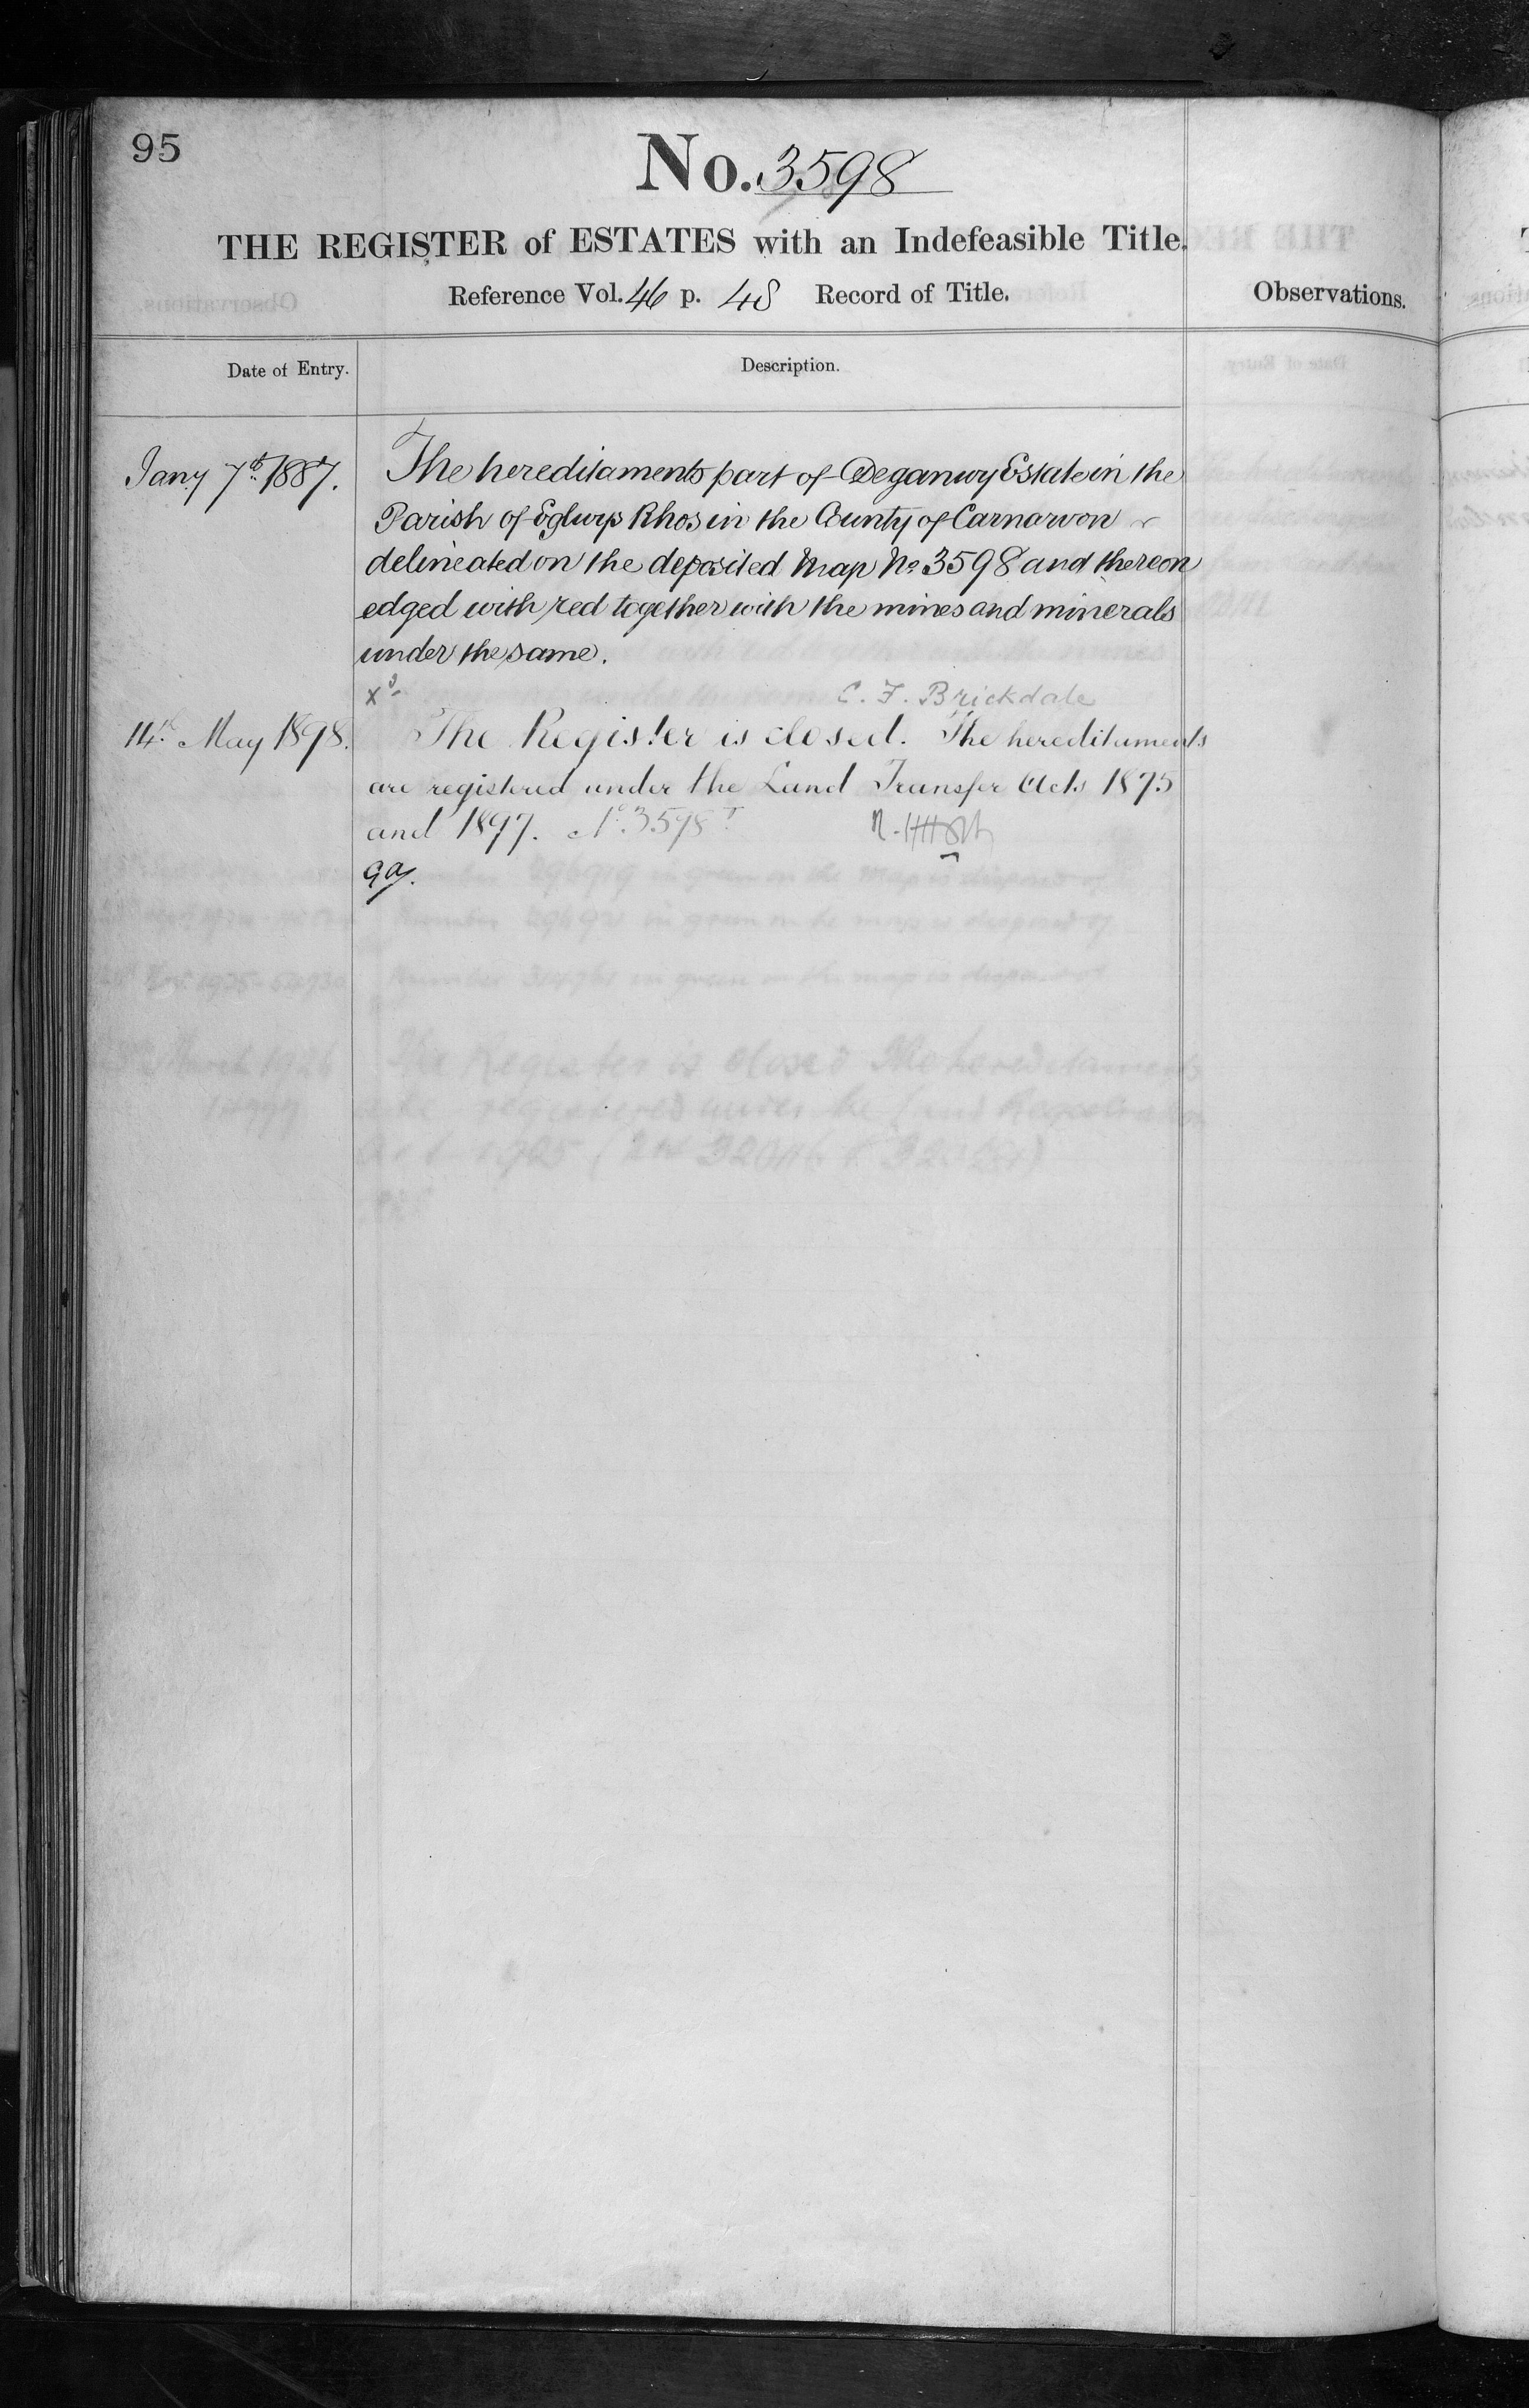 95
No. 3598
THE REGISTER of ESTATES with an Indefeasible Title.
Reference Vol. 46 p. 48 Record of Title.
Observations.
Date of Entry.
Description.
Jany 7th 1887.
The hereditaments part of Deganwy Estate in the
Parish of Eglwys Rhos in the County of Carnarvon
delineated on the deposited Map No 3598 and thereon
edged with red together with the mines and minerals
under the same.
C. F. Brickdale
14th May 1898.
The Register is closed. The hereditaments
are registered under the Land Transfer Acts 1875
and 1897. No. 3598